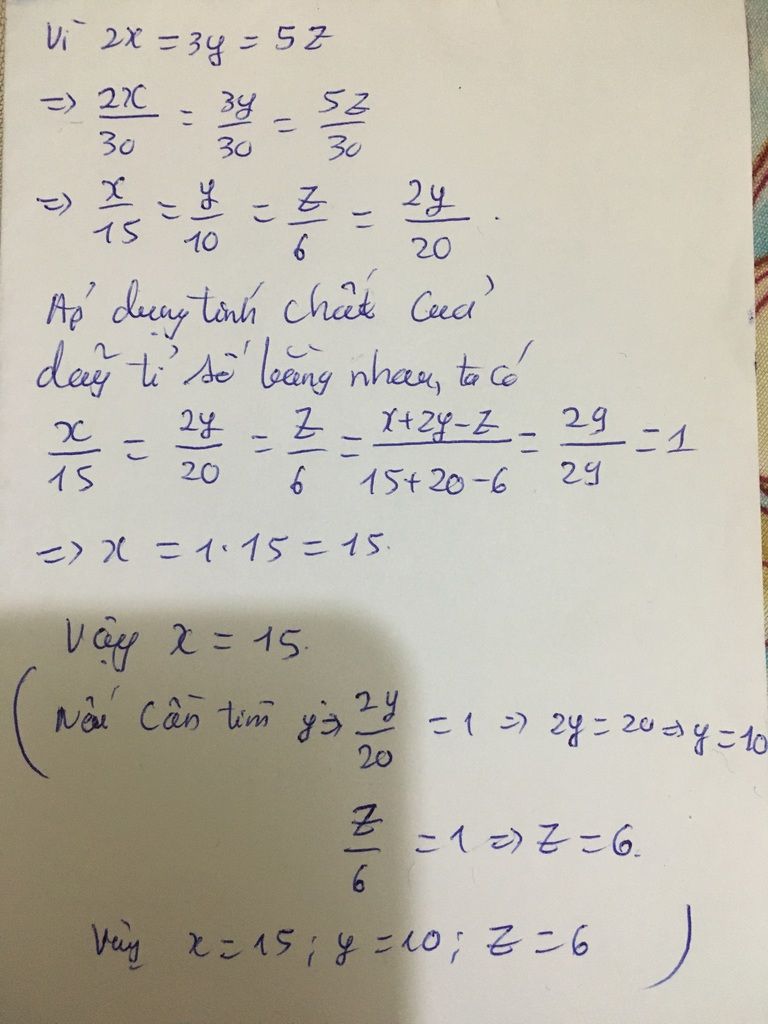 Vì 2x = 3y = 5z
=> 2x/30 = 3y/30 = 5z/30
=> x/15 = y/10 = z/6 = 2y/20.
Áp dụng tính chất của
dãy tỉ số bằng nhau, ta có
x/15 = 2y/20 = z/6 = x+2y-z/15+20-6 = 29/29 = 1
=> x = 1.15 = 15.
Vậy x = 15.
(Nếu cần tìm y => 2y/20 = 1 => 2y = 20 => y = 10
z/6 = 1 => z = 6.
Vậy x = 15; y = 10; z = 6)